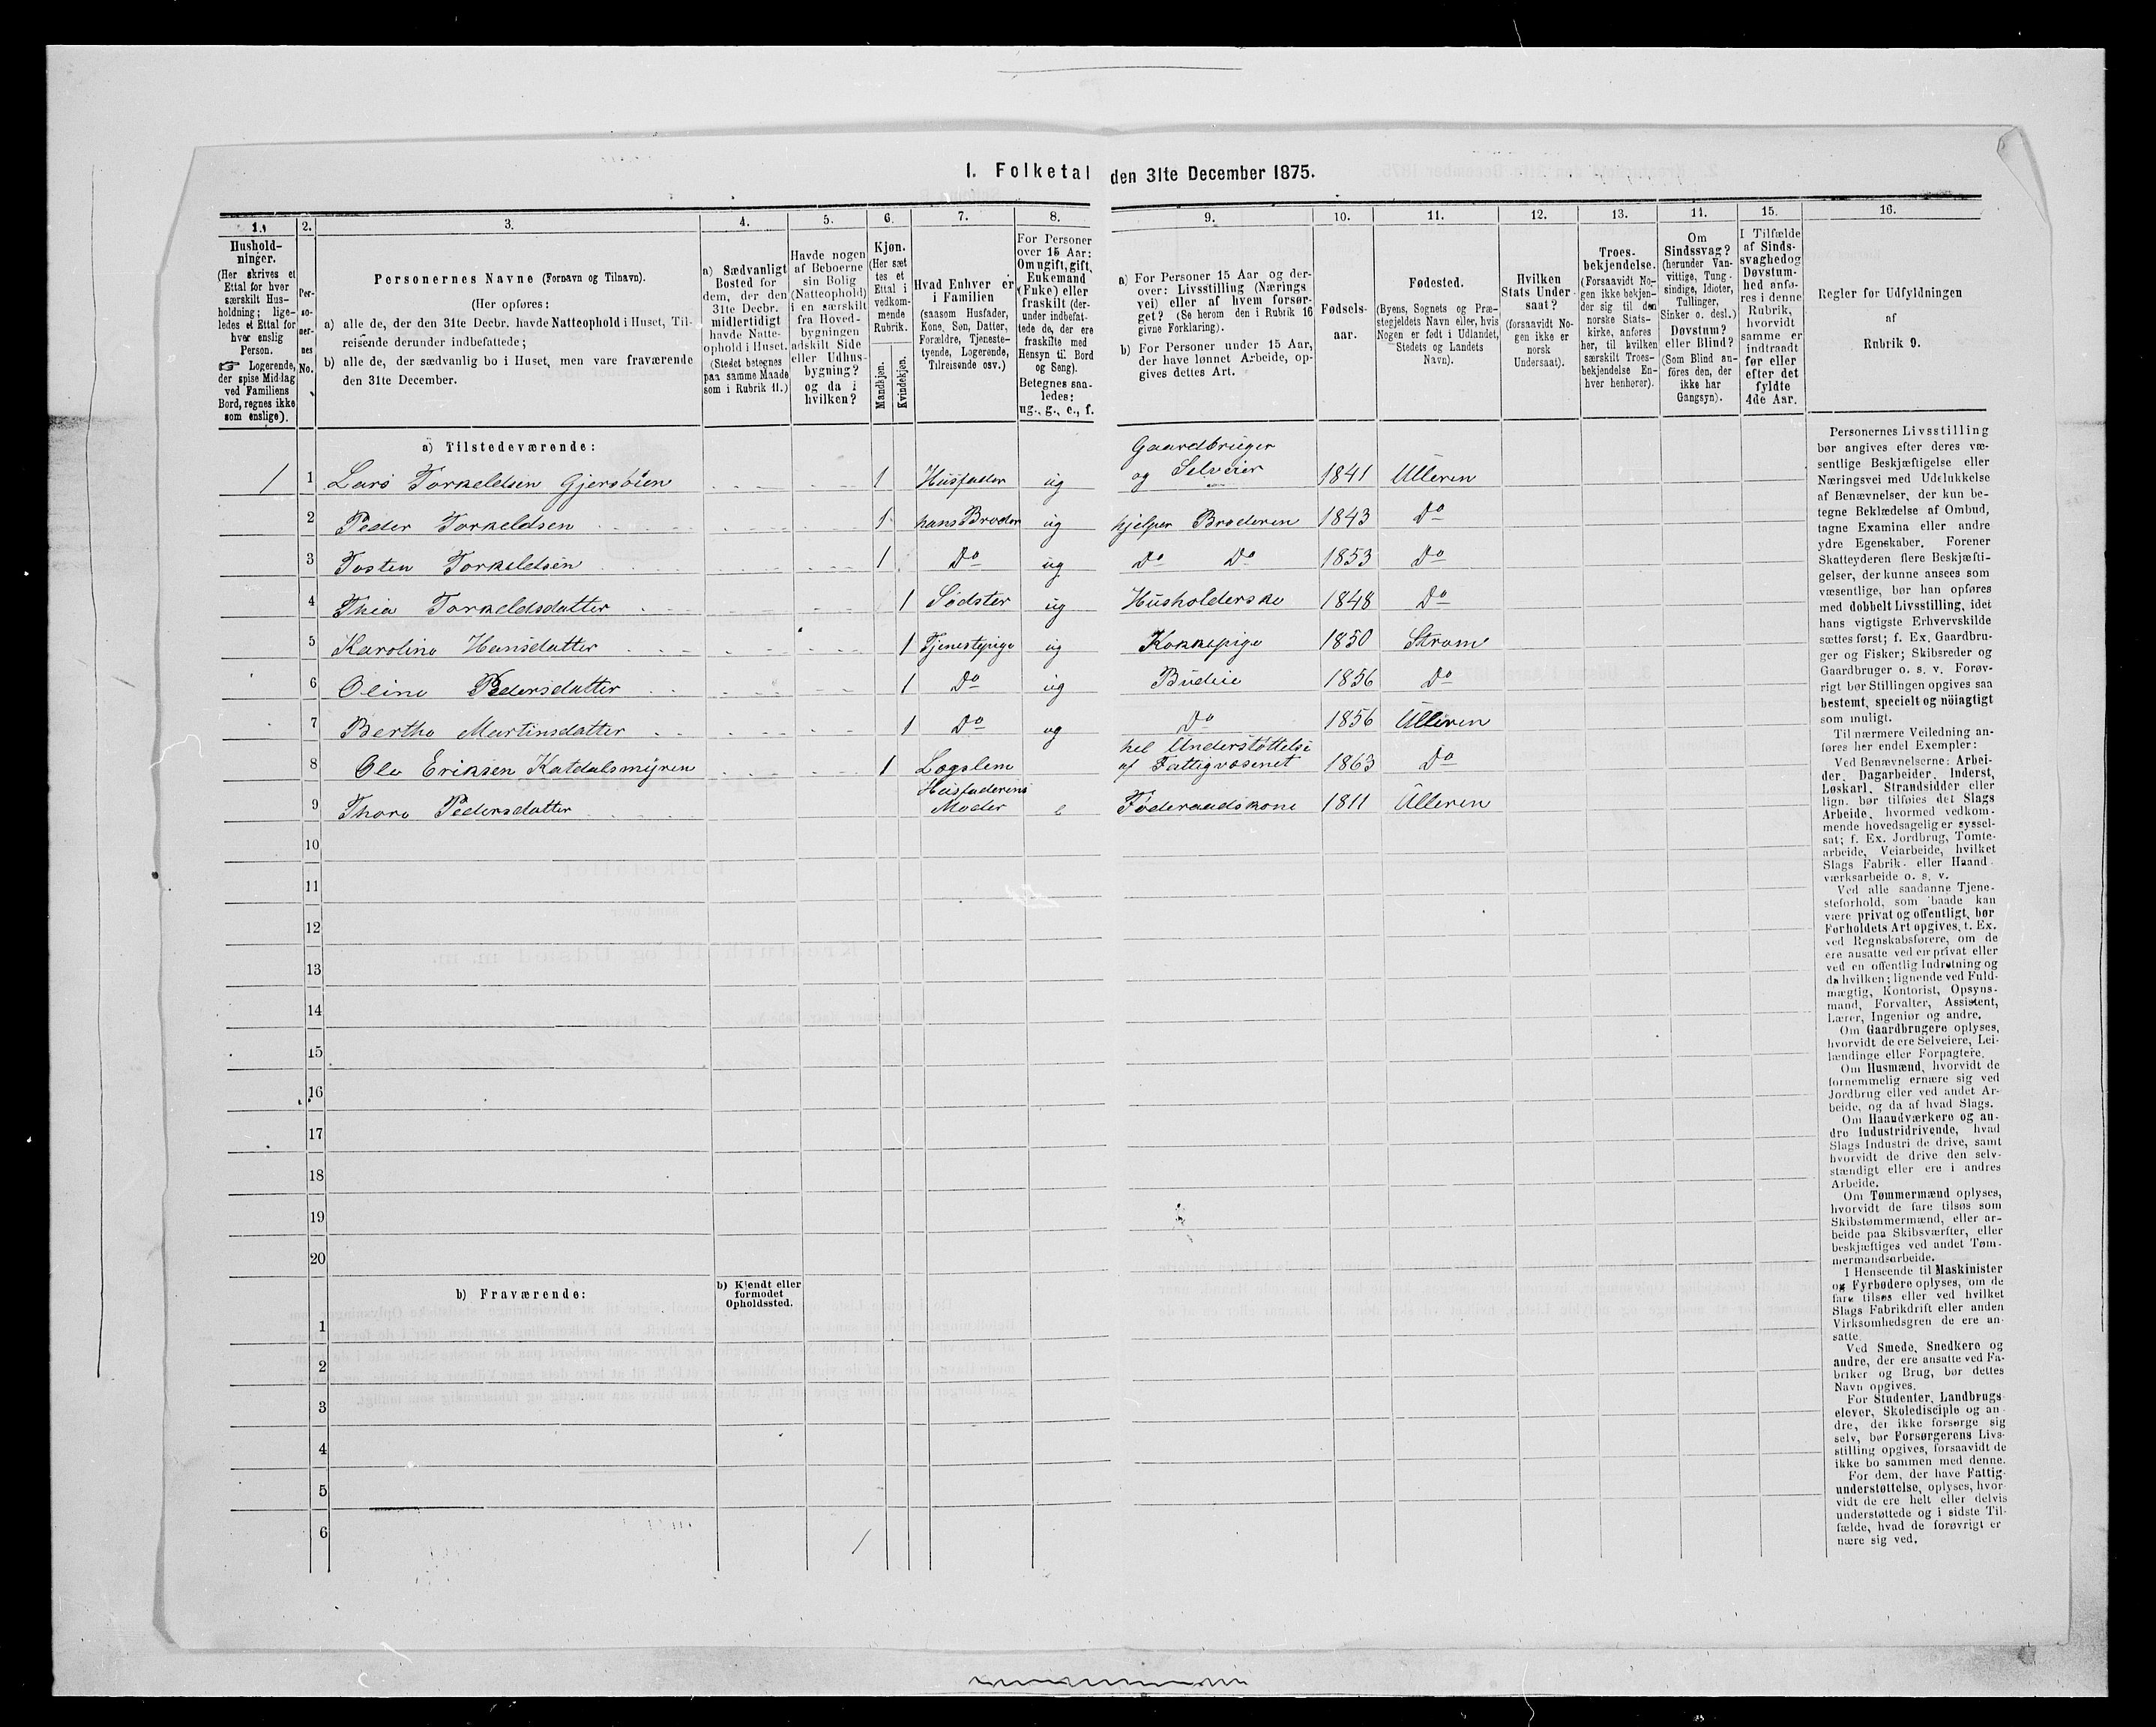 I. Folketal den 31te December 1875.
1.
Hushold-
ninger.
(Her skrives et
Ettal for hver
særskilt Hus-
holdning; lige-
ledes et Ettal for
hver enslig
Person.
☞ Logerende,
der spise Middag
ved Familiens
Bord, regnes ikke
som enslige).
2.
Per-
so-
ner-
nes
No.
3.
Personernes Navne (Fornavn og Tilnavn).
(Her opføres:
a) alle de, der den 31te Decbr. havde Natteophold i Huset, Til-
reisende derunder indbefattede;
b) alle de, der sædvanlig bo i Huset, men vare fraværende
den 31te December.
4.
a) Sædvanligt
Bosted for
dem, der den
31te Decbr.
midlertidigt
havde Natte-
ophold i Huset.
(Stedet betegnes
paa samme Maade
som i Rubrik 11.)
5.
Havde nogen
af Beboerne
sin Bolig
(Natteophold)
i en særskilt
fra Hoved-
bygningen
adskilt Side
eller Udhus-
bygning?
og da i
hvilken?
6.
Kjøn.
(Her sæt
tes et
Ettal i
vedkom-
mende
Rubrik.
Mandkjøn.
Kvindekjøn.
7.
Hvad Enhver er
i Familien
(saasom Husfader,
Kone, Søn, Datter,
Forældre, Tjeneste-
tyende, Logerende,
Tilreisende osv.)
8.
For Personer
over 15 Aar:
Om ugift, gift,
Enkemand
(Enke) eller
fraskilt (der-
under indbefat-
tede de, der ere
fraskilte med
Hensyn til Bord
og Seng).
Betegnes saa-
ledes:
ug., g., e., f.
9.
a) For Personer 15 Aar og der-
over: Livsstilling (Nærings
vei) eller af hvem forsør-
get? (Se herom den i Rubrik 16
givne Forklaring).
b) For Personer under 15 Aar,
der have lønnet Arbeide, op-
gives dettes Art.
10.
Fødsels-
aar.
11.
Fødested.
(Byens, Sognets og Præ-
stegjeldets Navn eller, hvis
Nogen er født i Udlandet,
Stedets og Landets
Navn).
12.
Hvilken
Stats Under-
saat?
(forsaavidt No-
gen ikke er
norsk
Undersaat).
13.
Troes-
bekjendelse.
(Forsaavidt No-
gen ikke bekjen-
der sig til den
norske Stats-
kirke, anføres
her, til hvilken
særskilt Troes-
bekjendelse En-
hver henhører).
11.
Om
Sindssvag?
(herunder Van-
vittige, Tung-
sindige, Idioter,
Tullinger,
Sinker o. desl.)
Døvstum?
eller Blind?
(Som Blind an-
føres den, der
ikke har
Gangsyn).
15.
I Tilfælde
af Sinds-
svaghed og
Døvstum-
hed anfø-
res i denne
Rubrik,
hvorvidt
samme er
indtraadt
før eller
efter det
fyldte
4de Aar.
16.
Regler for Udfyldningen
af
Rubrik 9.
a) Tilstedeværende:
Gaardbruger
1 1 Lars Torkeldsen Gjersøien 1 Husfader ug og Selveier 1841 Ulleren
2 Peder Torkeldsen 1 hans Broder ug hjelper Broderen 1843 Do
3 Tosten Torkeldsen 1 Do ug Do Do 1853 Do
4 Thia Torkeldsdatter 1 Sødster ug Husholderske 1848 Do
5 Karoline Hansdatter 1 Tjenestepige ug Kokkepige 1850 Strøm
6 Oline Pedersdatter 1 Do ug Budeie 1856 Do
7 Berthe Martinsdatter 1 Do ug Do 1856 Ulleren
hel Understøttelse
8 Ole Eriksen Katdalsmyren 1 Lægslem af Fattigvæsenet 1863 Do
Husfaderens
9 Thore Pedersdatter Moder e Føderaadskone 1811 Ulleren
10
11
12
13
14
15
16
17
18
19
20
b) Fraværende:
b) Kjendt eller
formodet
Opholdssted.
1
2
3
4
5
6
Personernes Livsstilling
bør angives efter deres væ-
sentlige Beskjæftigelse eller
Næringsvei med Udelukkelse
af Benævnelser, der kun be-
tegne Beklædelse af Ombud,
tagne Examina eller andre
ydre Egenskaber. Forener
Skatteyderen flere Beskjæfti-
gelser, der kunne ansees som
væsentlige, bør han opføres
med dobbelt Livsstilling, idet
hans vigtigste Erhvervskilde
sættes først; f. Ex. Gaardbru-
ger og Fisker; Skibsreder og
Gaardbruger o. s. v. Forøv-
rigt bør Stillingen opgives saa
bestemt, specielt og nöiagtigt
som muligt.
Til nærmere Veiledning an-
føres her endel Exempler:
Ved Benævnelserne: Arbei-
der, Dagarbeider, Inderst,
Løskarl, Strandsidder eller
lign. bør tilføies det Slags
Arbeide, hvormed vedkom-
mende hovedsagelig er syssel-
sat; f. Ex. Jordbrug, Tomte-
arbeide, Veiarbeide, hvilket
Slags Fabrik- eller Haand-
værksarbeide o. s. v.
Ved alle saadanne Tjene-
steforhold, som baade kan
være privat og offentligt, bør
Forholdets Art opgives, t. Ex.
ved Regnskabsførere, om de
ere ansatte ved en privat eller
ved en offentlig Indretning og
da hvilken; lignende ved Fuld-
mægtig, Kontorist, Opsyns-
mand, Forvalter, Assistent,
Lærer, Ingeniør og andre.
Om Gaardbrugere oplyses,
hvorvidt de ere Selveiere, Lei-
lændinge eller Forpagtere.
Om Husmænd, hvorvidt de
fornemmelig ernære sig ved
Jordbrug eller ved andet Ar-
beide, og da af hvad Slags.
Om Haandværkere og an-
dre Industridrivende, hvad
Slags Industri de drive, samt
hvorvidt de drive den selv-
stændigt eller ere i andres
Arbeide.
Om Tømmermænd oplyses,
hvorvidt de fare tilsøs som
Skibstømmermænd, eller ar-
beide paa Skibsværfter, eller
beskjæftiges ved andet Tøm-
mermandsarbeide.
I Henseende til Maskinister
og Fyrbødere oplyses, om de
fare tilsøs eller ved hvilket
Slags Fabrikdrift eller anden
Virksomhedsgren de ere an-
satte.
Ved Smede, Snedkere og
andre, der ere ansatte ved Fa-
briker og Brug, bør dettes
Navn opgives.
For Studenter, Landbrugs-
elever, Skoledisciple og an-
dre, der ikke forsørge sig
selv, bør Forsørgerens Livs-
stilling opgives, forsaavidt de
ikke bo sammen med denne.
For dem, der have Fattig-
understøttelse, oplyses, hvor-
vidt de ere helt eller delvis
understøttede og i sidste Til-
fælde, hvad de forøvrigt er
nære sig ved.